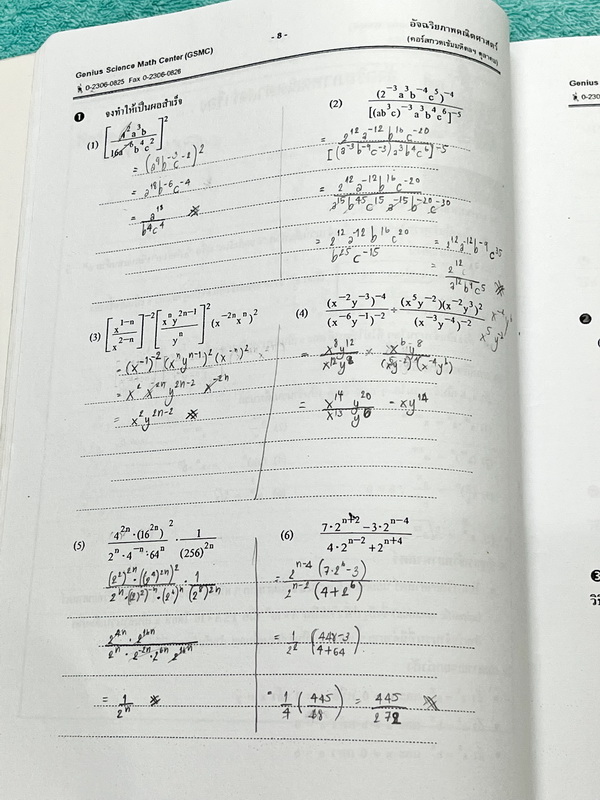 Genius Science Math Center (GSMC)
0-2306-0825 Fax 0-2306-0826
- 8 -
อัจฉริยภาพคณิตศาสตร์
(คอร์สกวดเข้มมหิดลฯ ตุลาคม)
❶ จงทำให้เป็นผลสำเร็จ
(1) [4²a³b / 16a⁻⁶b⁴c²]²
= (a⁹b⁻³c⁻²)²
= a¹⁸b⁻⁶c⁻⁴
= a¹⁸ / b⁶c⁴
(2) (2⁻³a³b⁻⁴c⁵)⁻⁴ / [(ab³c)⁻³a³b⁴c⁶]⁻⁵
= 2¹²a⁻¹²b¹⁶c⁻²⁰ / [(a⁻³b⁻⁹c⁻³)a³b⁴c⁶]⁻⁵
= 2¹²a⁻¹²b¹⁶c⁻²⁰ / a¹⁵b⁴⁵c¹⁵a⁻¹⁵b⁻²⁰c⁻³⁰
= 2¹²a⁻¹²b¹⁶c²⁰ / b²⁵c⁻¹⁵ = 2¹²a⁻¹²b⁻⁹c³⁵
(3) [x¹⁻ⁿ / x²⁻ⁿ]⁻² [xⁿy²ⁿ⁻¹ / yⁿ]² (x⁻²ⁿxⁿ)²
= (x⁻¹)⁻² (xⁿyⁿ⁻¹)² (x⁻ⁿ)²
= x² x²ⁿ y²ⁿ⁻² x⁻²ⁿ
= x²y²ⁿ⁻²
(4) (x⁻²y⁻³)⁻⁴ / (x⁻⁶y⁻¹)⁻² ÷ (x⁵y⁻²)(x⁻²y³)² / (x⁻³y⁻⁴)⁻²
= x⁸y¹² / x¹²y² × x⁶y⁸ / (x⁵y⁻²)(x⁻⁴y⁶)
= x¹⁴y²⁰ / x¹³y⁶ = xy¹⁴
(5) 4²ⁿ·(16²ⁿ)² / 2ⁿ·4⁻ⁿ·64ⁿ · 1 / (256)²ⁿ
(2²)²ⁿ·((2⁴)²ⁿ)² / 2ⁿ·(2²)⁻ⁿ·(2⁶)ⁿ · 1 / (2⁸)²ⁿ
2⁴ⁿ·2¹⁶ⁿ / 2ⁿ·2⁻²ⁿ·2⁶ⁿ·2¹⁶ⁿ
= 1 / 2ⁿ
(6) 7·2ⁿ⁺²−3·2ⁿ⁻⁴ / 4·2ⁿ⁻²+2ⁿ⁺⁴
= 2ⁿ⁻⁴(7·2⁶−3) / 2ⁿ⁻²(4+2⁶)
= 1/2² (448−3 / 4+64)
= 1/4 (445 / 68) = 445 / 272
Genius
0-230
❷
❸
วิ